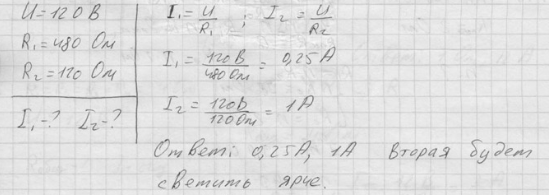 U=120В
R₁=480 Ом
R₂=120 Ом
I₁-? I₂-?
I₁=U/R₁ ; I₂=U/R₂
I₁=120В/480Ом=0,25А
I₂=120В/120Ом=1А
Ответ: 0,25А, 1А Вторая будет
светить ярче.